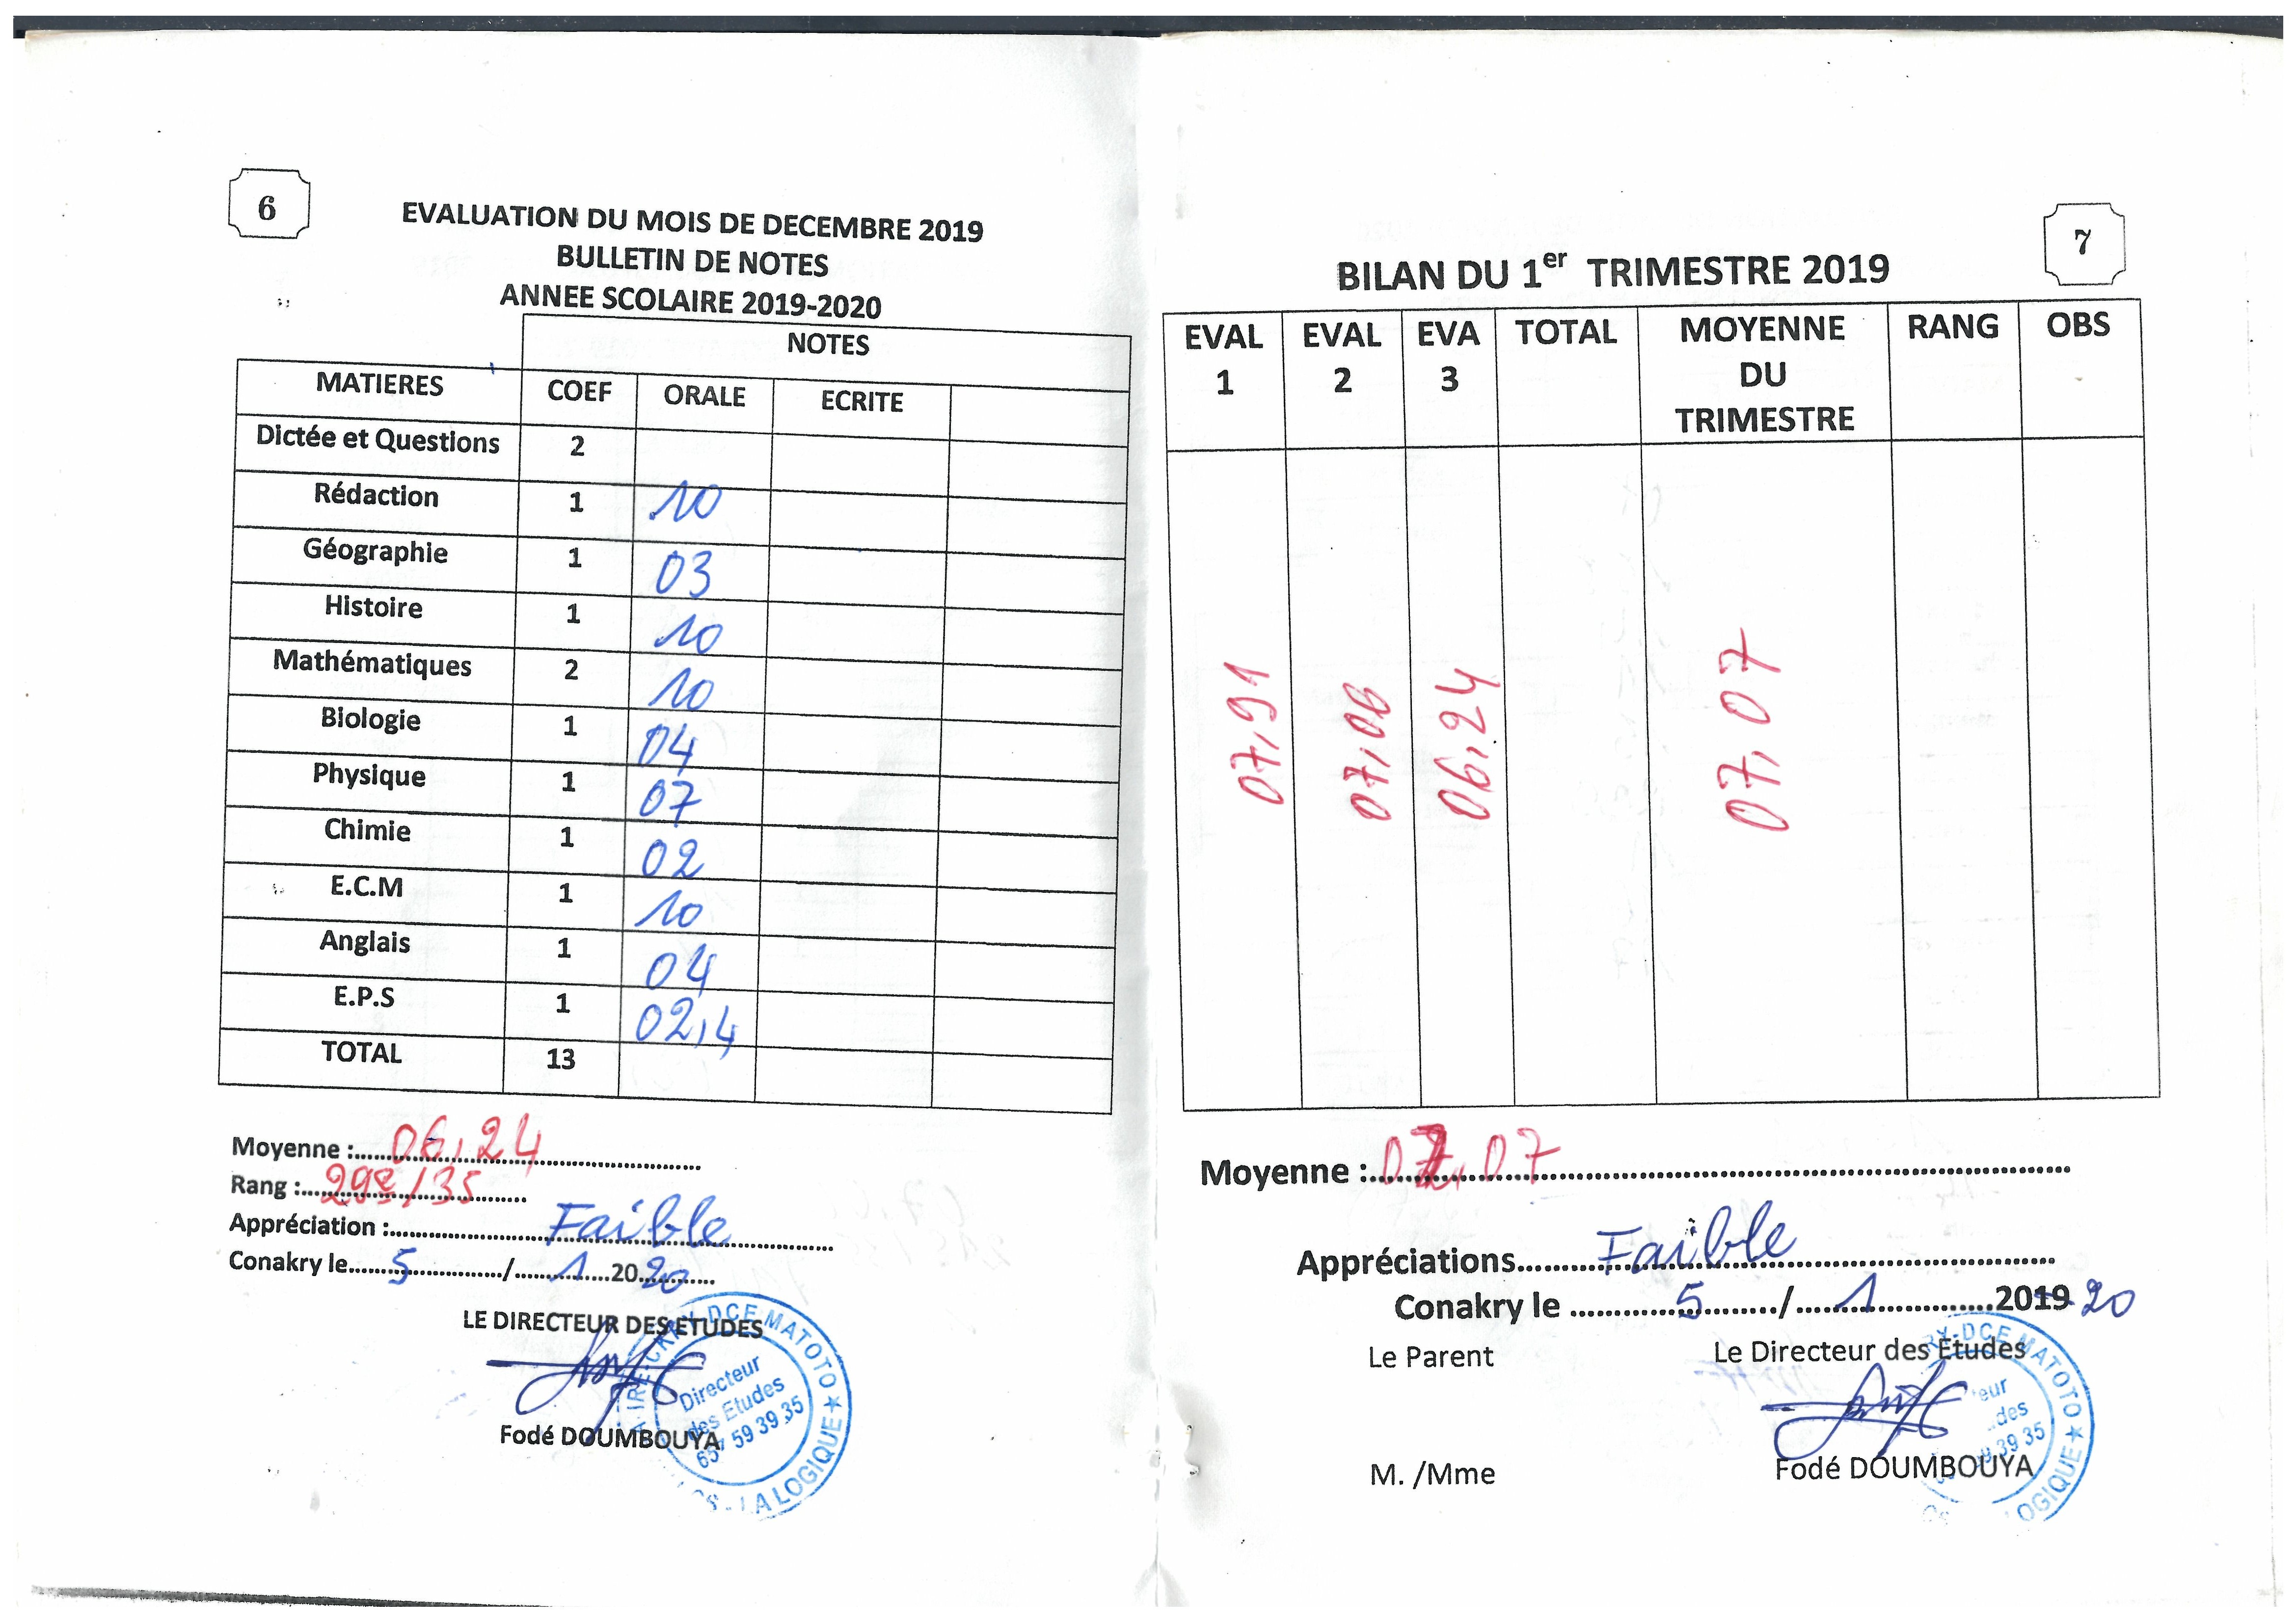 6
EVALUATION DU MOIS DE DECEMBRE 2019
BULLETIN DE NOTES
ANNEE SCOLAIRE 2019-2020
NOTES
MATIERES COEF ORALE ECRITE
Dictée et Questions 2
Rédaction 1 10
Géographie 1 03
Histoire 1 10
Mathématiques 2 10
Biologie 1 04
Physique 1 07
Chimie 1 02
E.C.M 1 10
Anglais 1 04
E.P.S 1 02,4
TOTAL 13
Moyenne :..........06,24..........
Rang :....29e/35....
Appréciation :..........Faible..........
Conakry le.....5...../.....1.....2020.....
LE DIRECTEUR DES ETUDES
Fodé DOUMBOUYA
DCE MATOTO ★
LA LOGIQUE ★
Directeur
des Etudes
657 59 39 35
7
BILAN DU 1er TRIMESTRE 2019
EVAL 1 EVAL 2 EVA 3 TOTAL MOYENNE DU TRIMESTRE RANG OBS
07,91 07,06 06,24 07,07
Moyenne :..........07,07..........
Appréciations..........Faible..........
Conakry le ..........5........../..........1..........2019 20
Le Parent Le Directeur des Etudes
M. /Mme Fodé DOUMBOUYA
DCE MATOTO ★
OGIQUE ★
eur
des
39 35